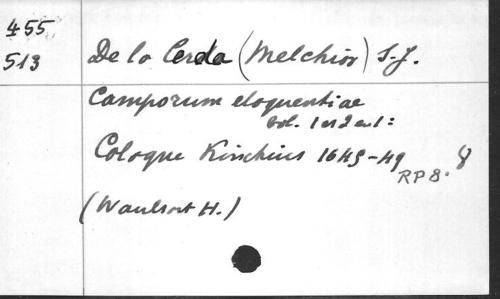 455
513
De la Cerda (Melchior) S.J.
Camporum eloquentiae
vol. 1 et 2 en 1:
Cologne Kinchius 1645-49 8
RP 8.
(Waulsort H.)